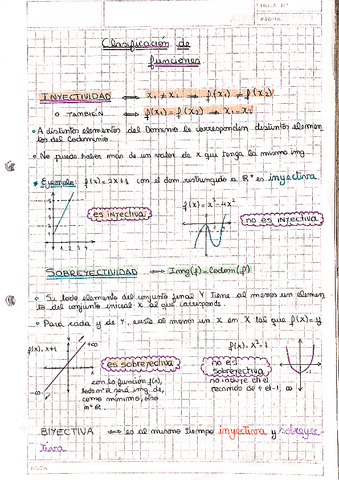 HOJA N°
FECHA
Clasificación de
funciones
INYECTIVIDAD ⟺ x₁ ≠ x₂ ⟹ f(x₁) ≠ f(x₂)
O TAMBIÉN ⟺ f(x₁) = f(x₂) ⟹ x₁ = x₂
• A distintos elementos del Dominio le corresponden distintos elemen
tos del Codominio
• No puede haber más de un valor de x que tenga la misma img
• Ejemplo: f(x) = 2x+1 con el dom restringido a R⁺ es inyectiva.
f(x) = x³-4x²
es inyectiva
no es inyectiva
1 2 3 4
SOBREYECTIVIDAD ⟺ Img(f) = Codom(f)
• Si todo elemento del conjunto final Y tiene al menos un elemen
to del conjunto inicial X al que corresponde
• Para cada y de Y, existe al menos un x en X tal que f(x) = y
f(x) = x+1
+∞
es sobreyectiva
con la función f(x),
img. de,
como mínimo, otro
n° R
-∞
f(x) = x²-1
no es
sobreyectiva
en el
recorrido de + el -1, ∞
BIYECTIVA ⟺ es al mismo tiempo inyectiva y sobreyec
tiva